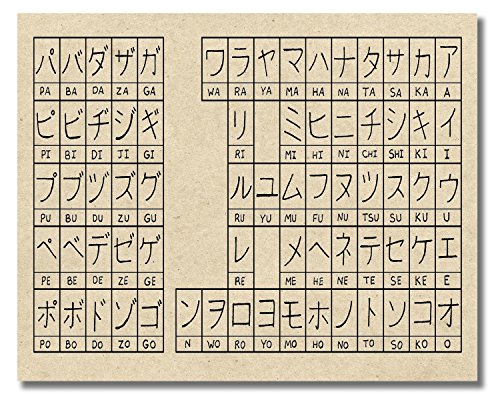 パ バ ダ ザ ガ ワ ラ ヤ マ ハ ナ タ サ カ ア
PA BA DA ZA GA WA RA YA MA HA NA TA SA KA A
ピ ビ ヂ ジ ギ リ ミ ヒ ニ チ シ キ イ
PI BI DI JI GI RI MI HI NI CHI SHI KI I
プ ブ ヅ ズ グ ル ユ ム フ ヌ ツ ス ク ウ
PU BU DU ZU GU RU YU MU FU NU TSU SU KU U
ペ ベ デ ゼ ゲ レ メ ヘ ネ テ セ ケ エ
PE BE DE ZE GE RE ME HE NE TE SE KE E
ポ ボ ド ゾ ゴ ン ヲ ロ ヨ モ ホ ノ ト ソ コ オ
PO BO DO ZO GO N WO RO YO MO HO NO TO SO KO O